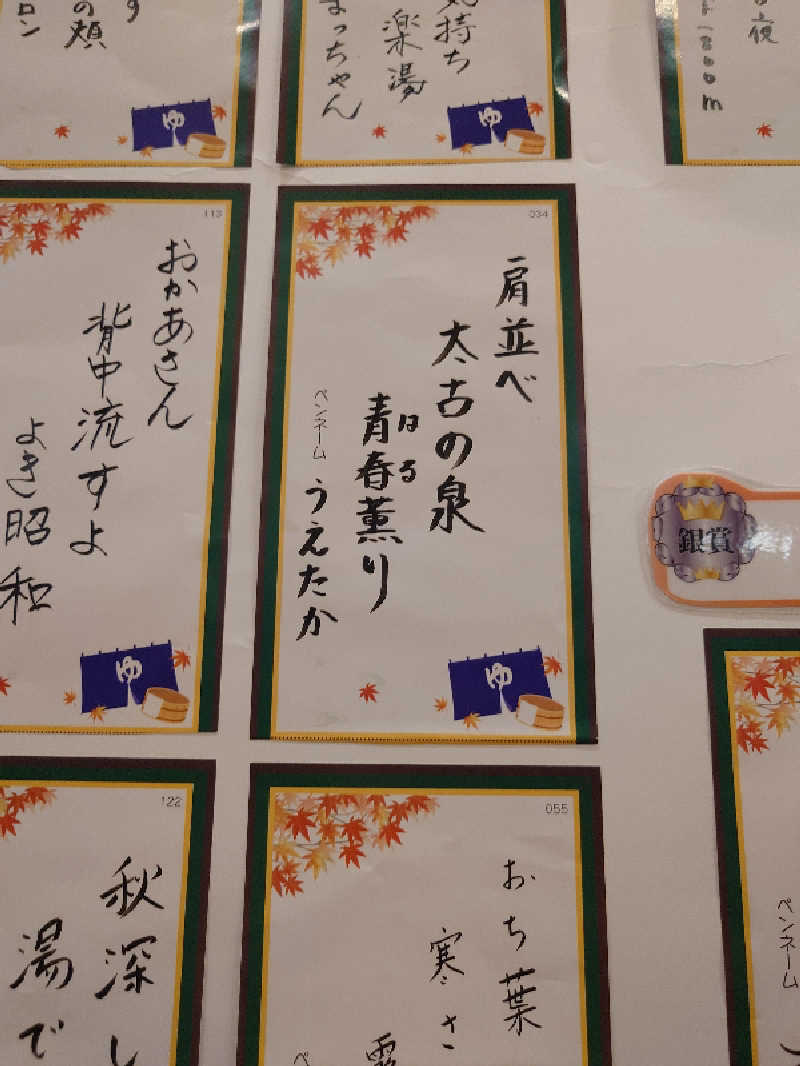 の頬
気持ち
楽湯
まっちゃん
夜
1800m
ゆ
ゆ
113
おかあさん
背中流すよ
よき昭和
ゆ
034
肩並べ
太古の泉
青春薫り
はる
ペンネーム うえたか
ゆ
銀賞
122
秋深し
湯で
055
おち葉
寒さ
ペンネーム